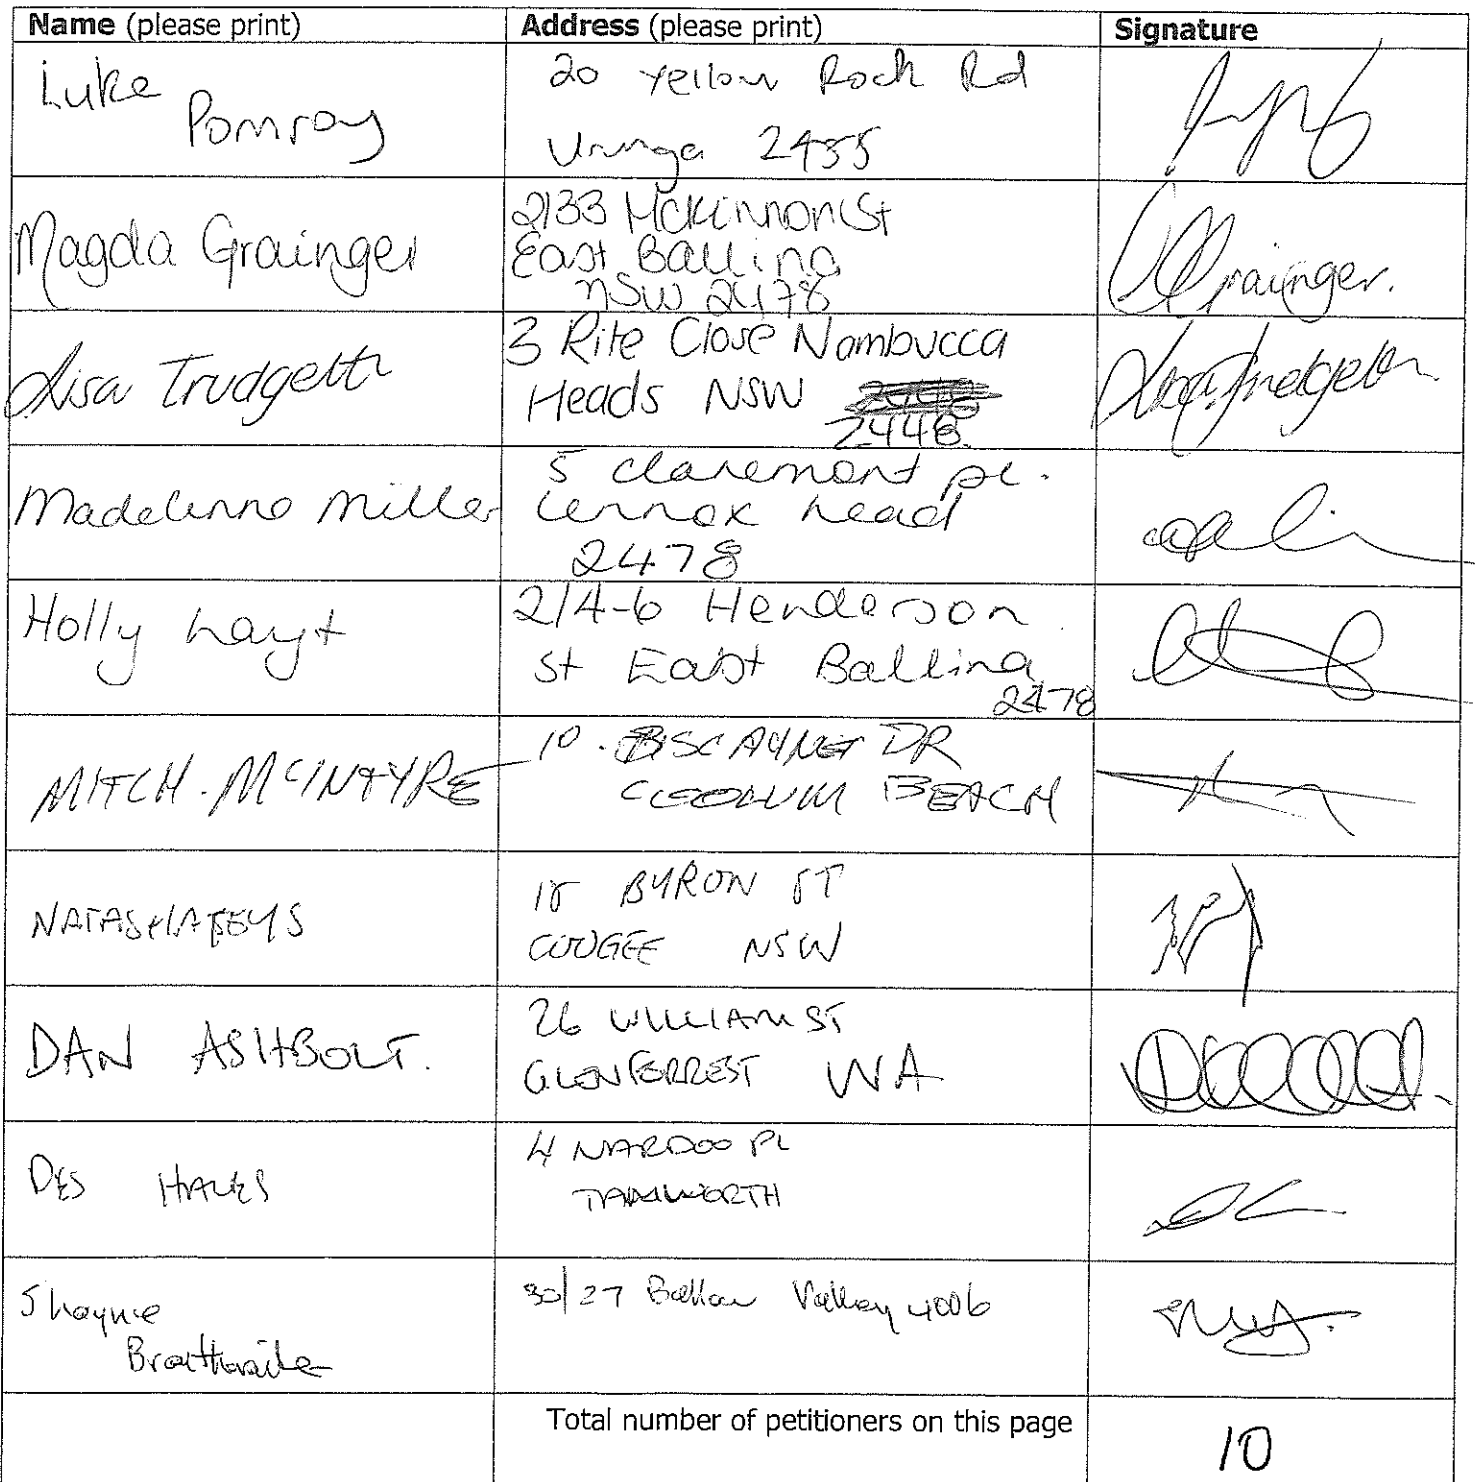 Name (please print) Address (please print) Signature
Luke Pomroy
20 Yellow Rock Rd
Urunga 2455
Magda Grainger
2/33 McKinnon St
East Ballina
NSW 2478
Grainger.
Lisa Trudgett
3 Rite Close Nambucca
Heads NSW
2448.
Madelenne Miller
5 claremont pl.
Lennox head
2478
Holly Layt
2/4-6 Henderson
St East Ballina
2478
MITCH. MCINTYRE
10. BISCAYNE DR
COOLUM BEACH
NATASHA BEYS
18 BYRON ST
COOGEE NSW
DAN ASHBOLT.
26 WILLIAM ST
GLENFORREST WA
DES HALES
4 NARDOO PL
TAMWORTH
Shayne
Braithwaite
30/27 Ballow Valley 4006
Total number of petitioners on this page 10